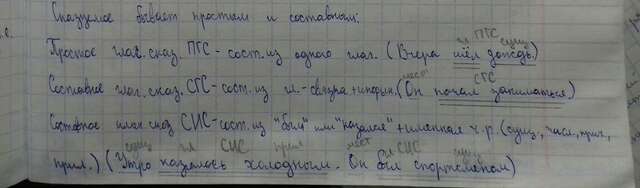 Сказуемое бывает простым и составным:
гл ПГС сущ
Простое глаг. сказ. ПГС - сост. из одного глаг. (Вчера шёл дождь.)
мест СГС
Составное глаг. сказ. СГС - сост. из гл.-связка + инфин. (Он начал заниматься.)
Составное имен. сказ. СИС - сост. из "был" или "казался" + именная ч.р. (сущ., числ., прил.,
сущ гл СИС прил мест гл СИС сущ
прил.) (Утро казалось холодным. Он был спортсменом)